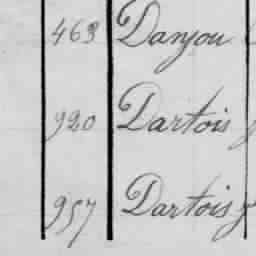 463 Danjou
920 Dartois
957 Dartois